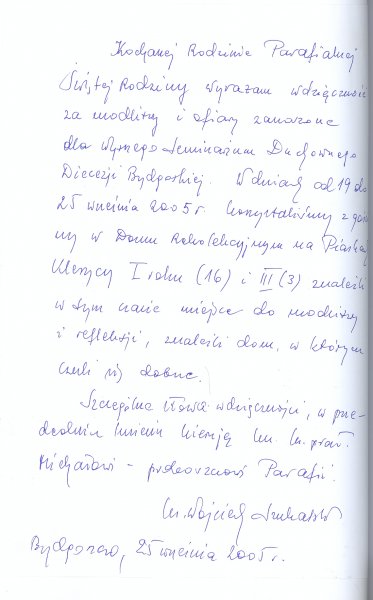 Kochanej Rodzinie Parafialnej
Świętej Rodziny wyrażam wdzięczność
za modlitwy i ofiary zanoszone
dla Wyższego Seminarium Duchownego
Diecezji Bydgoskiej. W dniach od 19 do
25 września 2005 r. korzystaliśmy z gości
ny w Domu Rekolekcyjnym na Piaskach
Klerycy I roku (16) i III (3) znaleźli
w tym czasie miejsce do modlitwy
i refleksji, znaleźli dom, w którym
czuli się dobrze.
Szczególne słowa wdzięczności, w
imieniu kieruję
Michałowi - proboszczowi Parafii.
ks. Wojciech
Bydgoszcz, 25 września 2005 r.